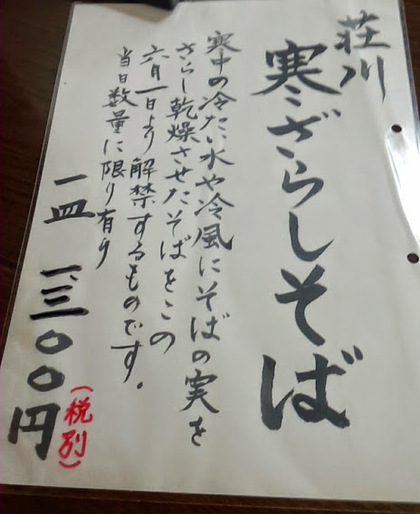 荘川
寒ざらしそば
寒中の冷たい水や冷風にそばの実を
さらし乾燥させたそばをこの
六月一日より解禁するものです。
当日数量に限り有り
一皿 一、三〇〇円
(税別)